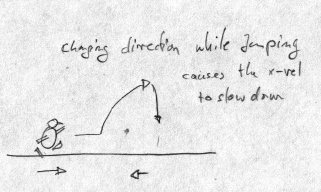 changing direction while Jumping
causes the x-vel
to slow down